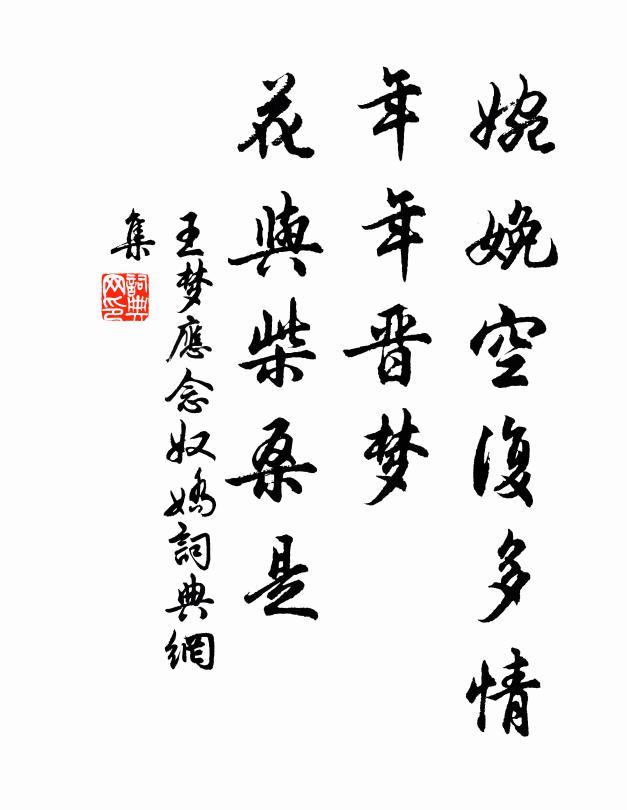 婉娩空復多情
年年晋梦
花與柴桑是
王梦應念奴嬌詞典網
集
詞典
网印